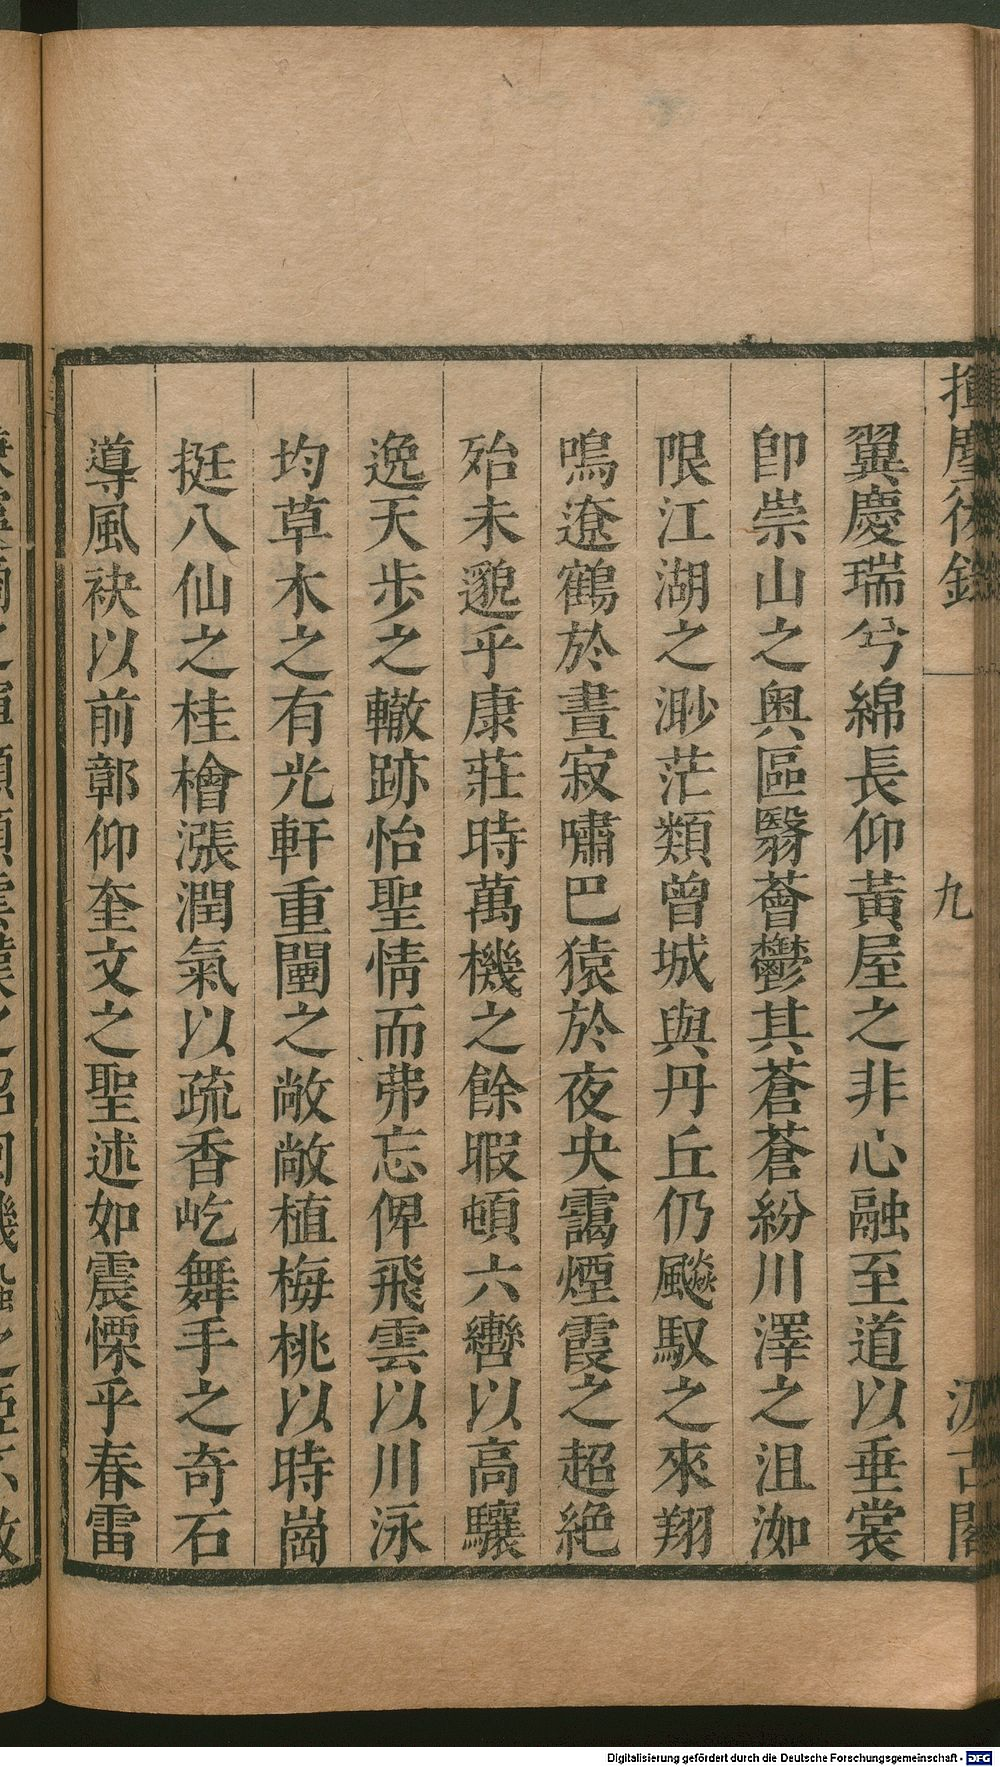 揮麈後錄
九
汲古閣
翼慶瑞兮綿長仰黃屋之非心融至道以垂裳
卽崇山之奥區翳薈鬱其蒼蒼紛川澤之沮洳
限江湖之渺茫類曾城與丹丘仍飈馭之來翔
鳴遼鶴於晝寂嘯巴猿於夜央靄煙霞之超絶
殆未邈乎康莊時萬機之餘暇頓六轡以高驤
逸天步之轍跡怡聖情而弗忘俾飛雲以川泳
均草木之有光軒重闈之敞敞植梅桃以時崗
挺八仙之桂檜漲潤氣以疏香屹舞手之奇石
導風袂以前鄣仰奎文之聖述如震慄乎春雷
Digitalisierung gefördert durch die Deutsche Forschungsgemeinschaft - DFG